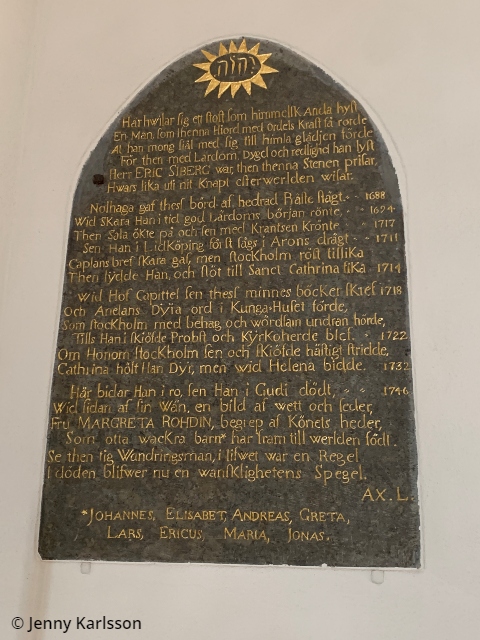 יהוה
Här hwilar sig en stoft som himmelsk Anda hyst
En Man, som thenna Hiord med Ordels Kraft få rörde
At han mong siäl med sig till himla glädjen förde
För then med Lärdom Dygd och redlighd han lyst
Herr ERIC SIBERG war, then thenna Stenen prisar,
Hwars lika uti nit Knapt efterwerlden wisar.
Nolhaga gaf thess börd af hedrad Rails slägt. 1688
Wid Skara Han i tid god Lärdoms början rönte, 1694
Then Sala ökte på och sen med Krantsen Krönte 1717
Sen Han i Lidköping först sågs i Arons drägt 1711
Caplans bref Skara gaf, men stockholm röst tillika
Then lydde Han, och flöt till Sanct Cathrina lika 1714
Wid Hof Capittel sen thess minnes böcker skref 1718
Och Anelans Dyra ord i Kunga-Huset förde,
Som stockholm med behag och wördsam undran hörde,
Tills Han i skiöfde Probst och Kyrkoherde blef. 1722
Om Honom stockholm sen och skiöfde häftigt stridde,
Cathrina hölt Han Dyr, men wid Helena bidde. 1732
Här bidar Han i ro, sen Han i Gudi dödt, 1746
Wid sidan af sin Wän, en bild af wett och seder,
Fru MARGRETA ROHDIN, begrep af Könets heder,
Som otta wackra barn* har fram till werlden födt.
Se then tig Wandringsman, i lifwet war en Regel
I döden blifwer nu en wansklighetens Spegel.
AX. L.
*JOHANNES, ELISABET, ANDREAS, GRETA,
LARS, ERICUS MARIA, JONAS.
© Jenny Karlsson